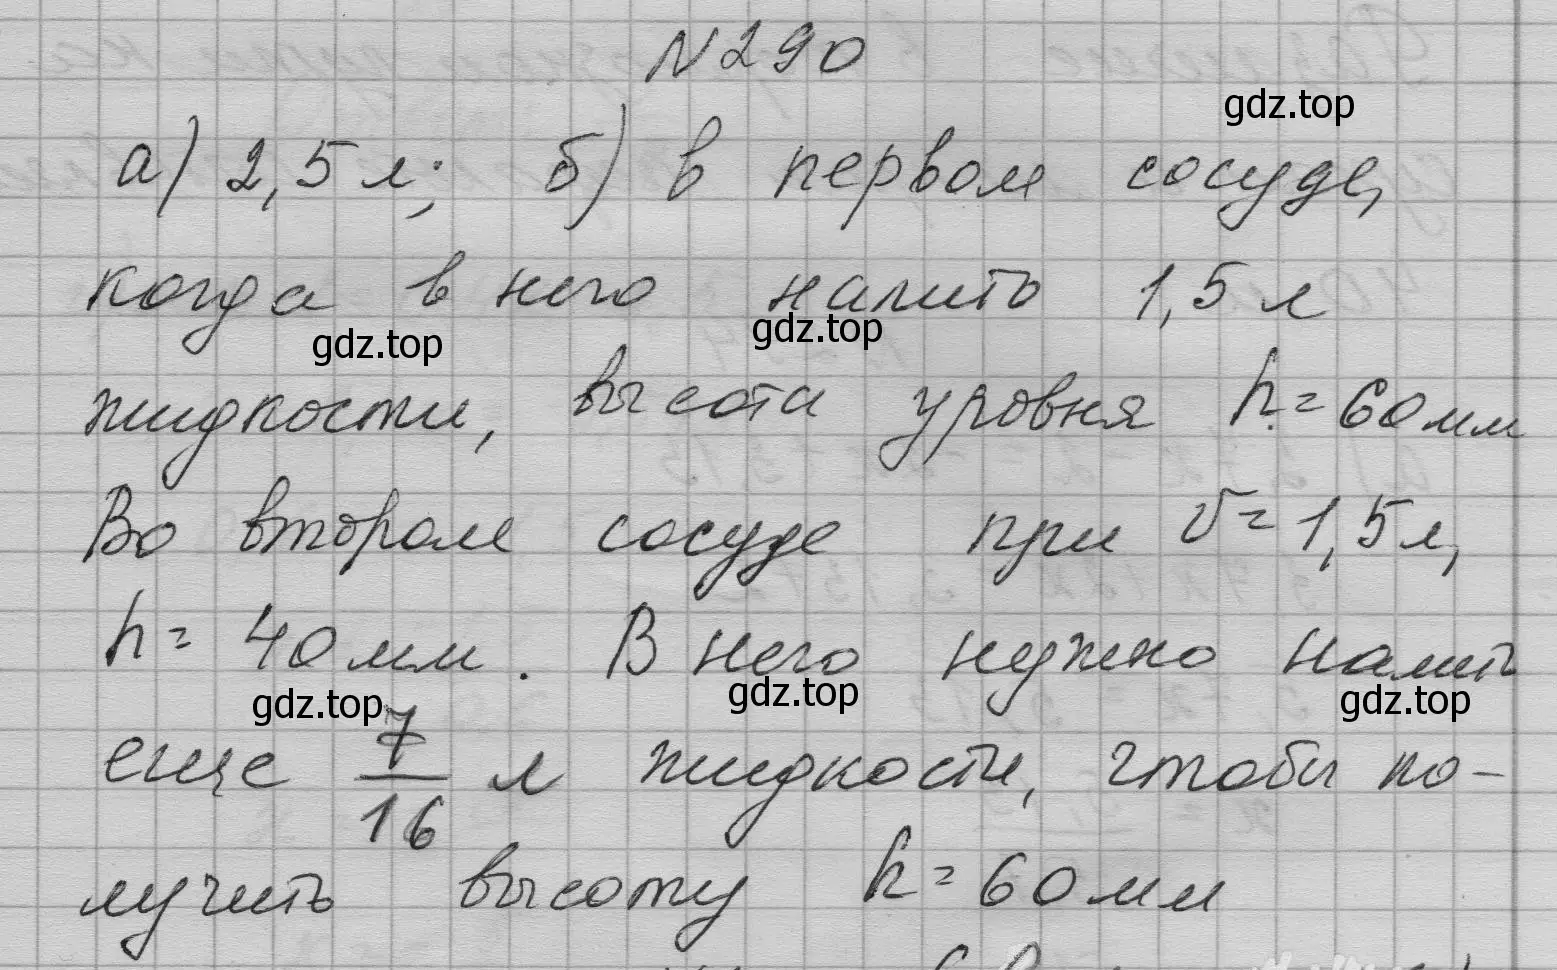 N 290
gdz.top
а) 2,5 л; б) в первом сосуде,
когда в него налить 1,5 л
gdz.top gdz.top
жидкости, высота уровня h = 60 мм
Во втором сосуде при V = 1,5 л,
h = 40 мм. В него нужно налить
gdz.top gdz.top gdz.top
еще 7/16 л жидкости, чтобы по-
лучить высоту h = 60 мм